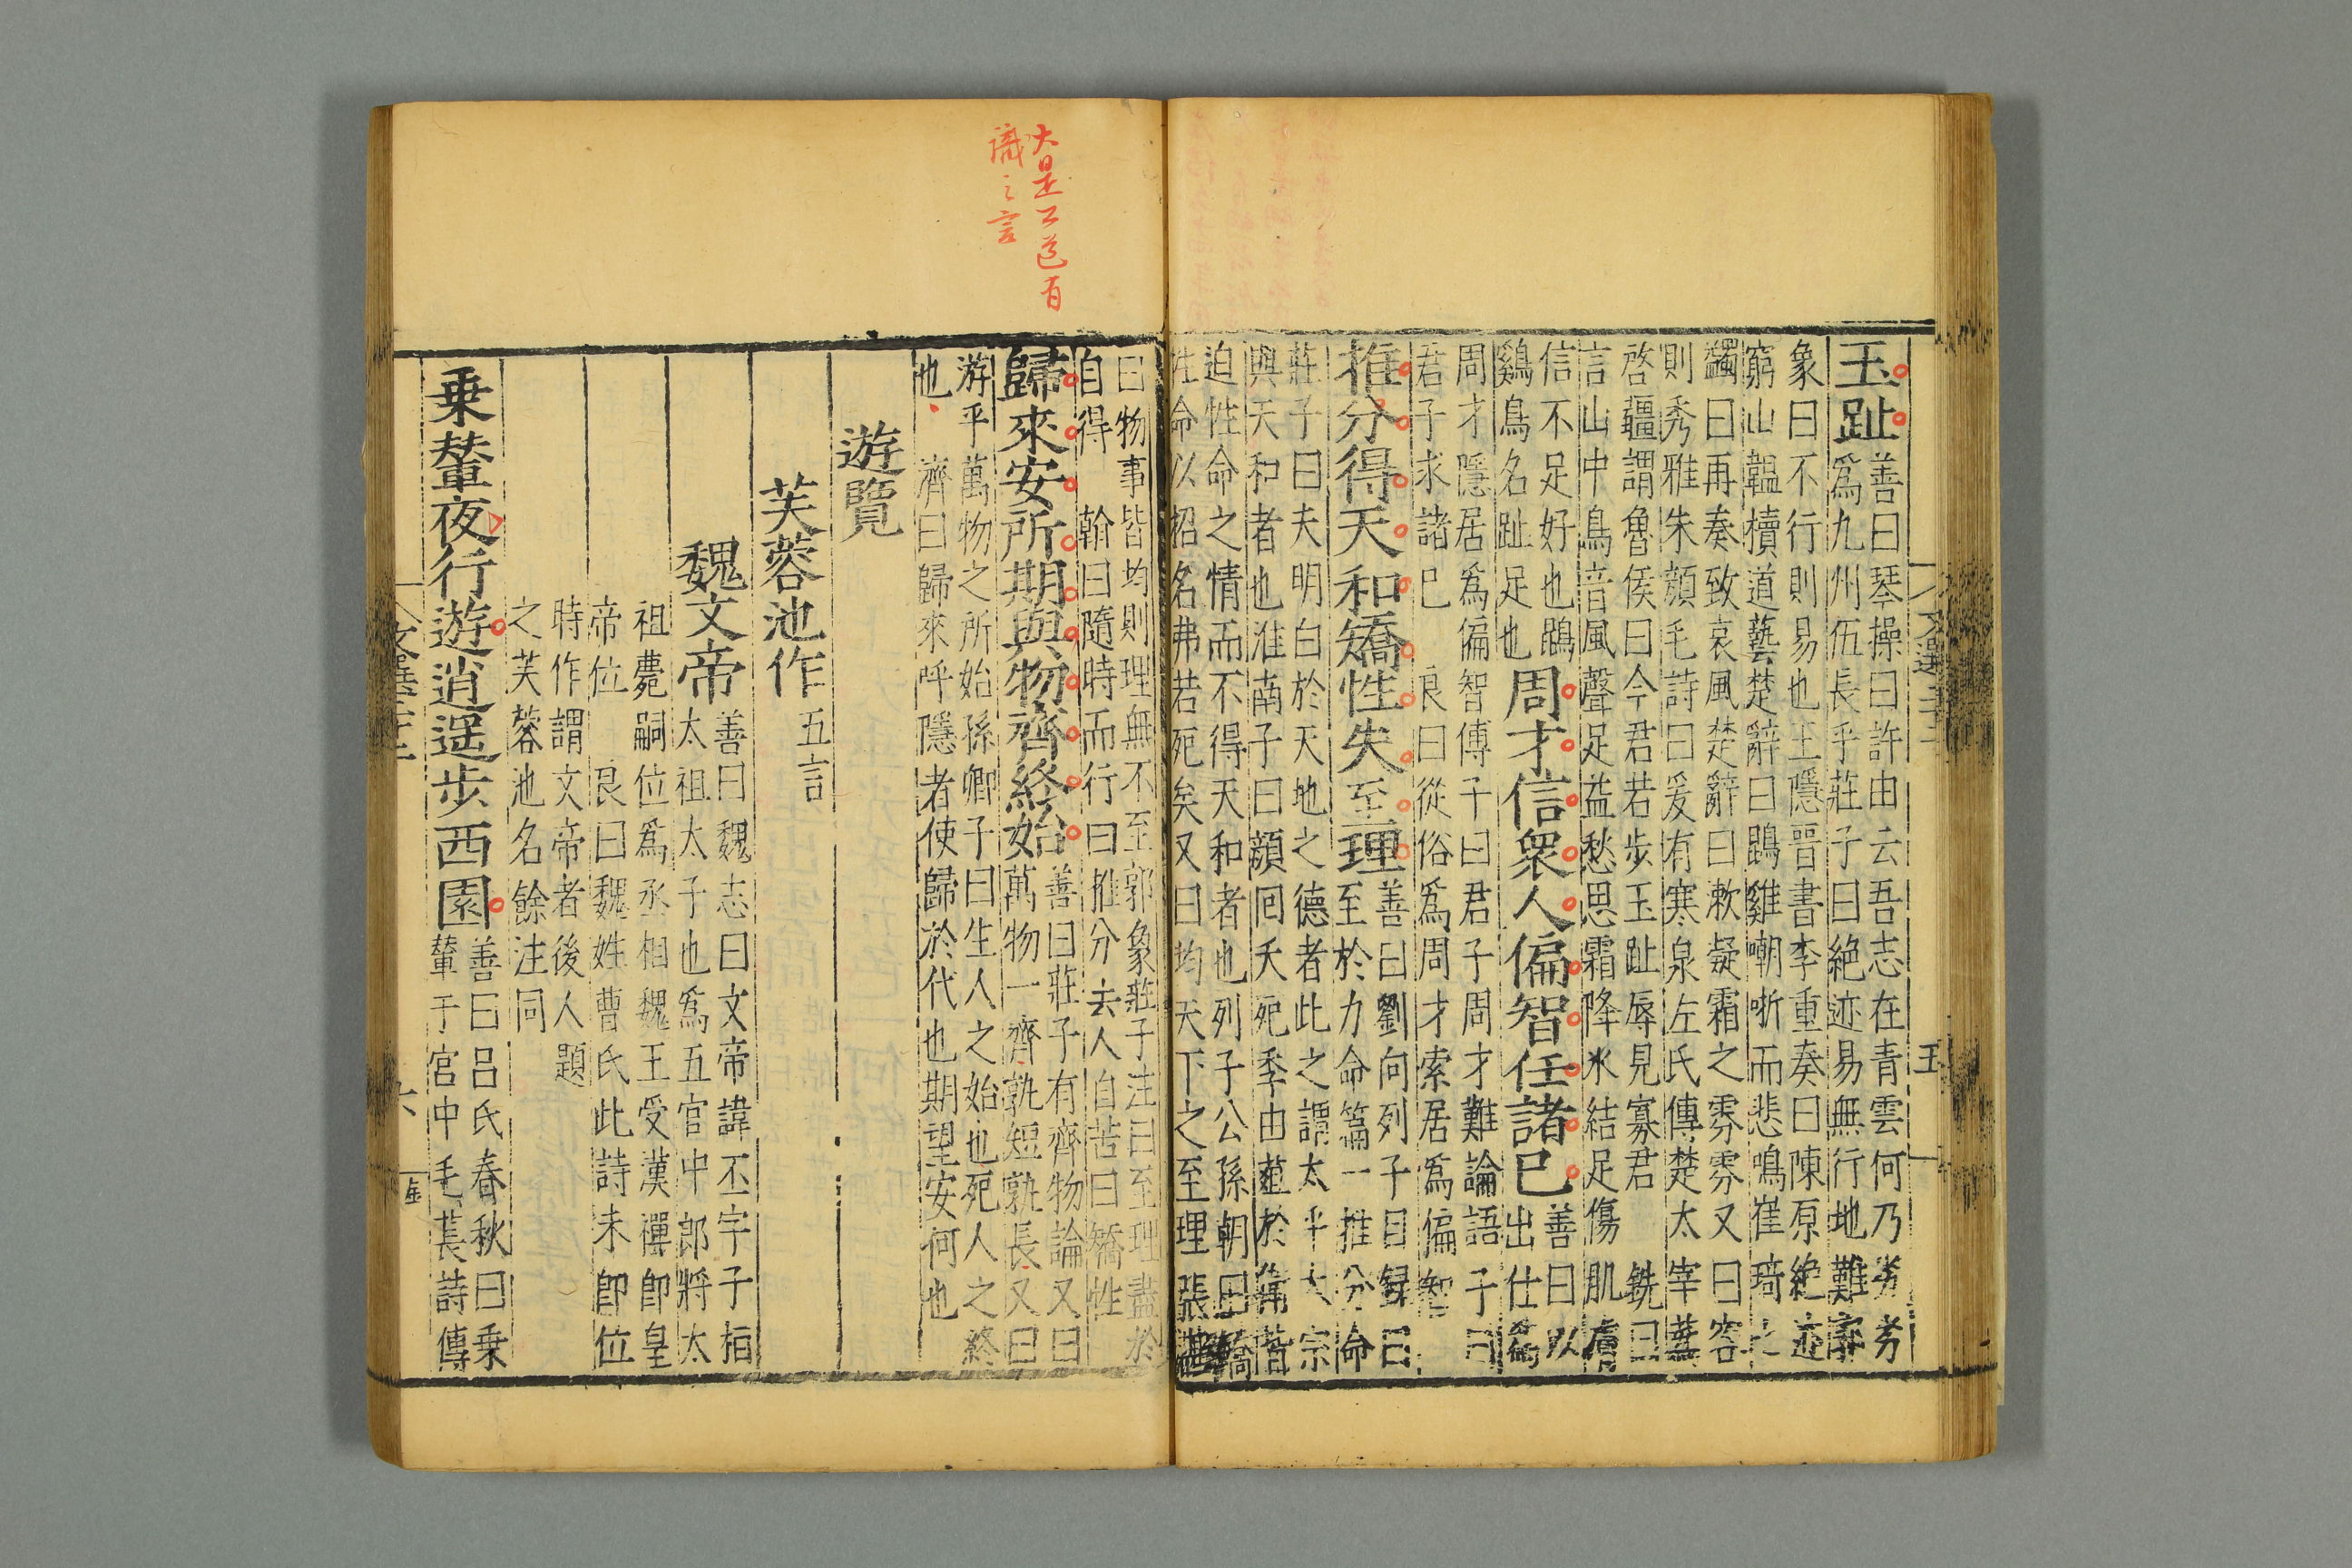 玉趾善曰琴操曰許由云吾志在青雲何乃劣劣
爲九州伍長乎莊子曰絕迹易無行地難
象曰不行則易也王隱晉書李重奏曰陳原絕迹
窮山韞櫝道藝楚辭曰鵾雞嘲哳而悲鳴崔琦
蠲曰再奏致哀風楚辭曰漱凝霜之雰雰又曰容
則秀雅朱顔毛詩曰爰有寒泉左氏傳楚太宰薳
啓疆謂魯侯曰今君若步玉趾辱見寡君 銑曰
言山中鳥音風聲足益愁思霜降氷結足傷肌膚
信不足好也鵾
鷄鳥名趾足也
周才信衆人偏智任諸已善曰以
出仕爲
周才隱居爲偏智傅子曰君子周才難論語子曰
君子求諸已 良曰從俗爲周才索居爲偏智
推分得天和矯性失至理善曰劉向列子目録曰
至於力命篇一推分命
莊子曰夫明白於天地之德者此之謂太平太宗
與天和者也淮南子曰顔囘夭死季由葅於衛皆
迫性命之情而不得天和者也列子公孫朝曰矯
性命以招名弗若死矣又曰均天下之至理張湛
文選二十二
五
大是不道有
識之言
曰物事皆均則理無不至郭象莊子注曰至理盡於
自得 翰曰隨時而行曰推分去人自苦曰矯性
歸來安所期與物齊終始善曰莊子有齊物論又曰
萬物一齊孰短孰長又曰
游乎萬物之所始孫卿子曰生人之始也死人之終
也 濟曰歸來呼隱者使歸於代也期望安何也
遊覽
芙蓉池作五言
魏文帝善曰魏志曰文帝諱丕字子桓
太祖太子也爲五官中郎將太
祖薨嗣位爲丞相魏王受漢禪卽皇
帝位 良曰魏姓曹氏此詩未卽位
時作謂文帝者後人題
之芙蓉池名餘注同
乗輦夜行遊逍遥步西園善曰吕氏春秋曰乗
輦于宫中毛萇詩傳
文選二十二
六